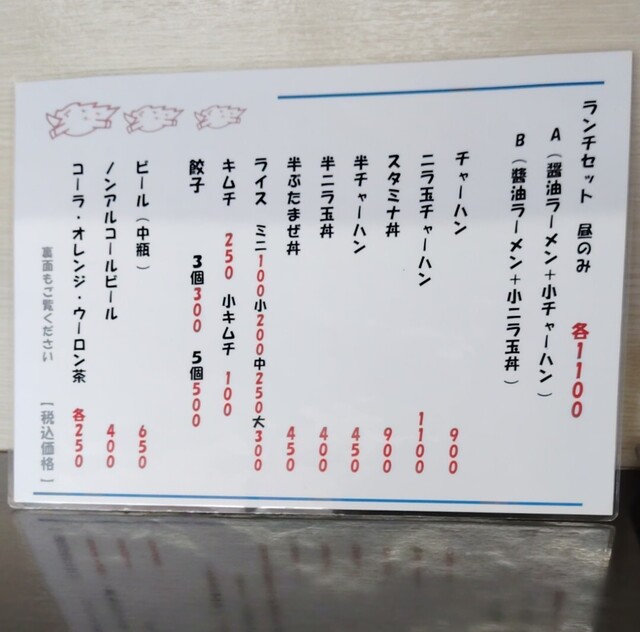 ランチセット 昼のみ 各1100
A(醤油ラーメン+小チャーハン)
B(醬油ラーメン+小ニラ玉丼)
チャーハン 900
ニラ玉チャーハン 1100
スタミナ丼 900
半チャーハン 450
半ニラ玉丼 400
半ぶたまぜ丼 450
ライス ミニ100小200中250大300
キムチ 250 小キムチ 100
餃子 3個300 5個500
ビール(中瓶) 650
ノンアルコールビール 400
コーラ・オレンジ・ウーロン茶 各250
裏面もご覧ください [税込価格]